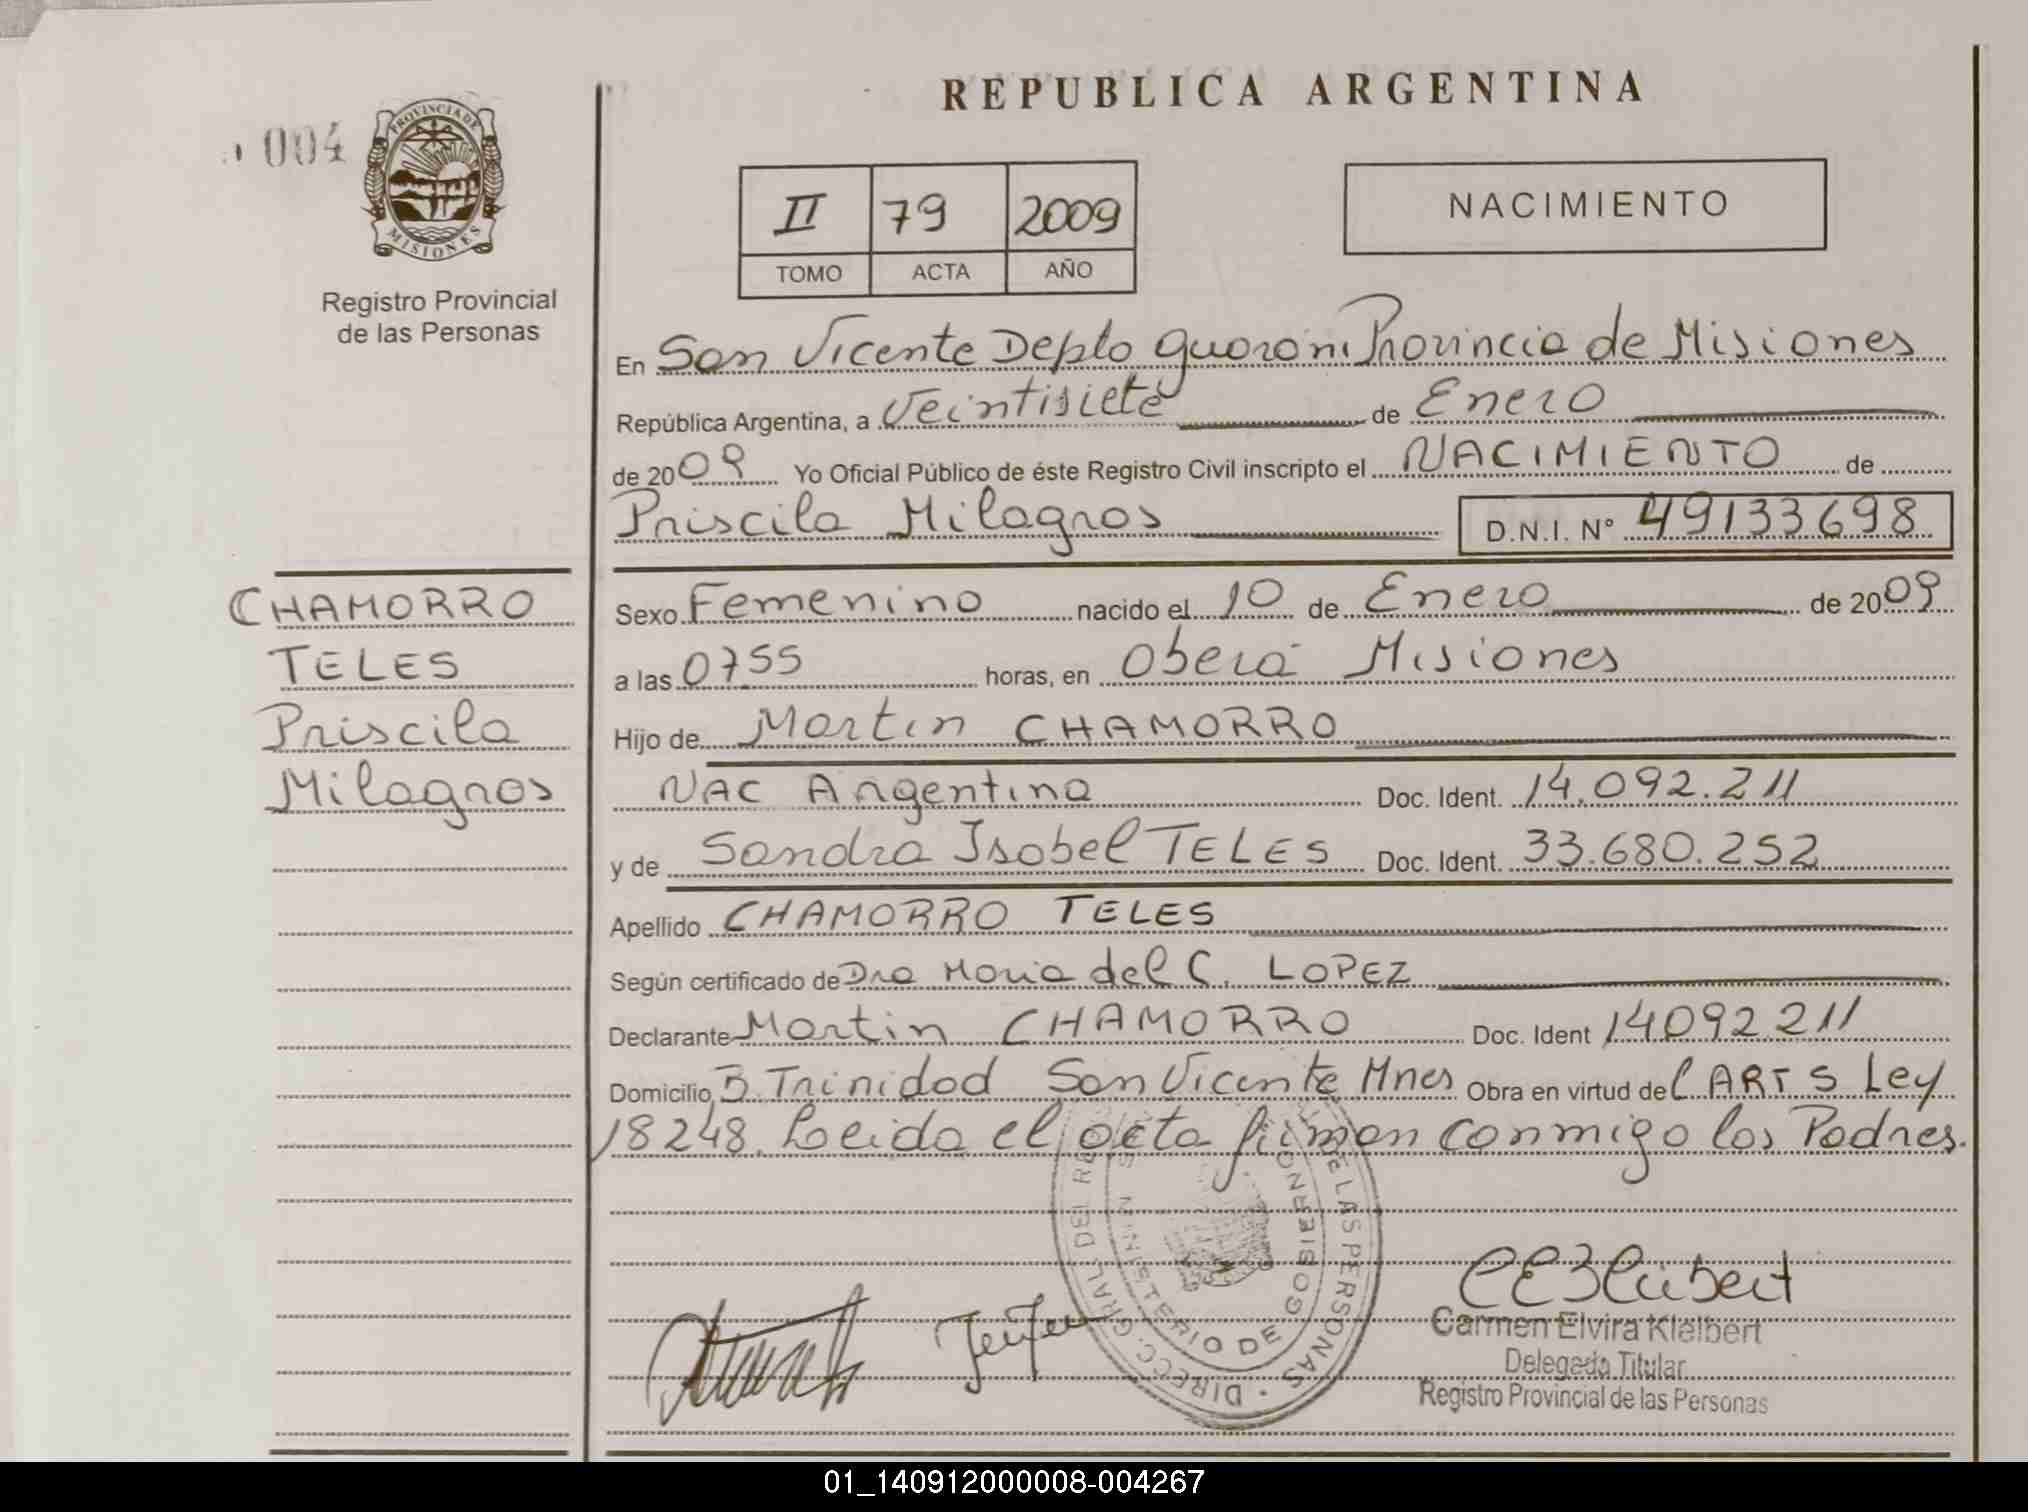 REPUBLICA ARGENTINA
004
PROVINCIA DE
MISIONES
Registro Provincial
de las Personas
II 79 2009
TOMO ACTA AÑO
NACIMIENTO
En San Vicente Depto Guaraní Provincia de Misiones
República Argentina, a Veintisiete de Enero
de 2009 Yo Oficial Público de éste Registro Civil inscripto el NACIMIENTO de
Priscila Milagros D.N.I. Nº 49133698
CHAMORRO
TELES
Priscila
Milagros
Sexo Femenino nacido el 10 de Enero de 2009
a las 0755 horas, en Oberá Misiones
Hijo de Martin CHAMORRO
NAC Argentina Doc. Ident. 14.092.211
y de Sandra Isabel TELES Doc. Ident. 33.680.252
Apellido CHAMORRO TELES
Según certificado de Dra Maria del C. LOPEZ
Declarante Martin CHAMORRO Doc. Ident 14092211
Domicilio B. Trinidad San Vicente Mnes Obra en virtud del ART 5 Ley
18248. Leida el acta firman conmigo los Padres.
DIRECC. GRAL. DEL RE DE LAS PERSONAS
MINISTERIO DE GOBIERNO
Carmen Elvira Kleibert
Delegada Titular
Registro Provincial de las Personas
01_140912000008-004267